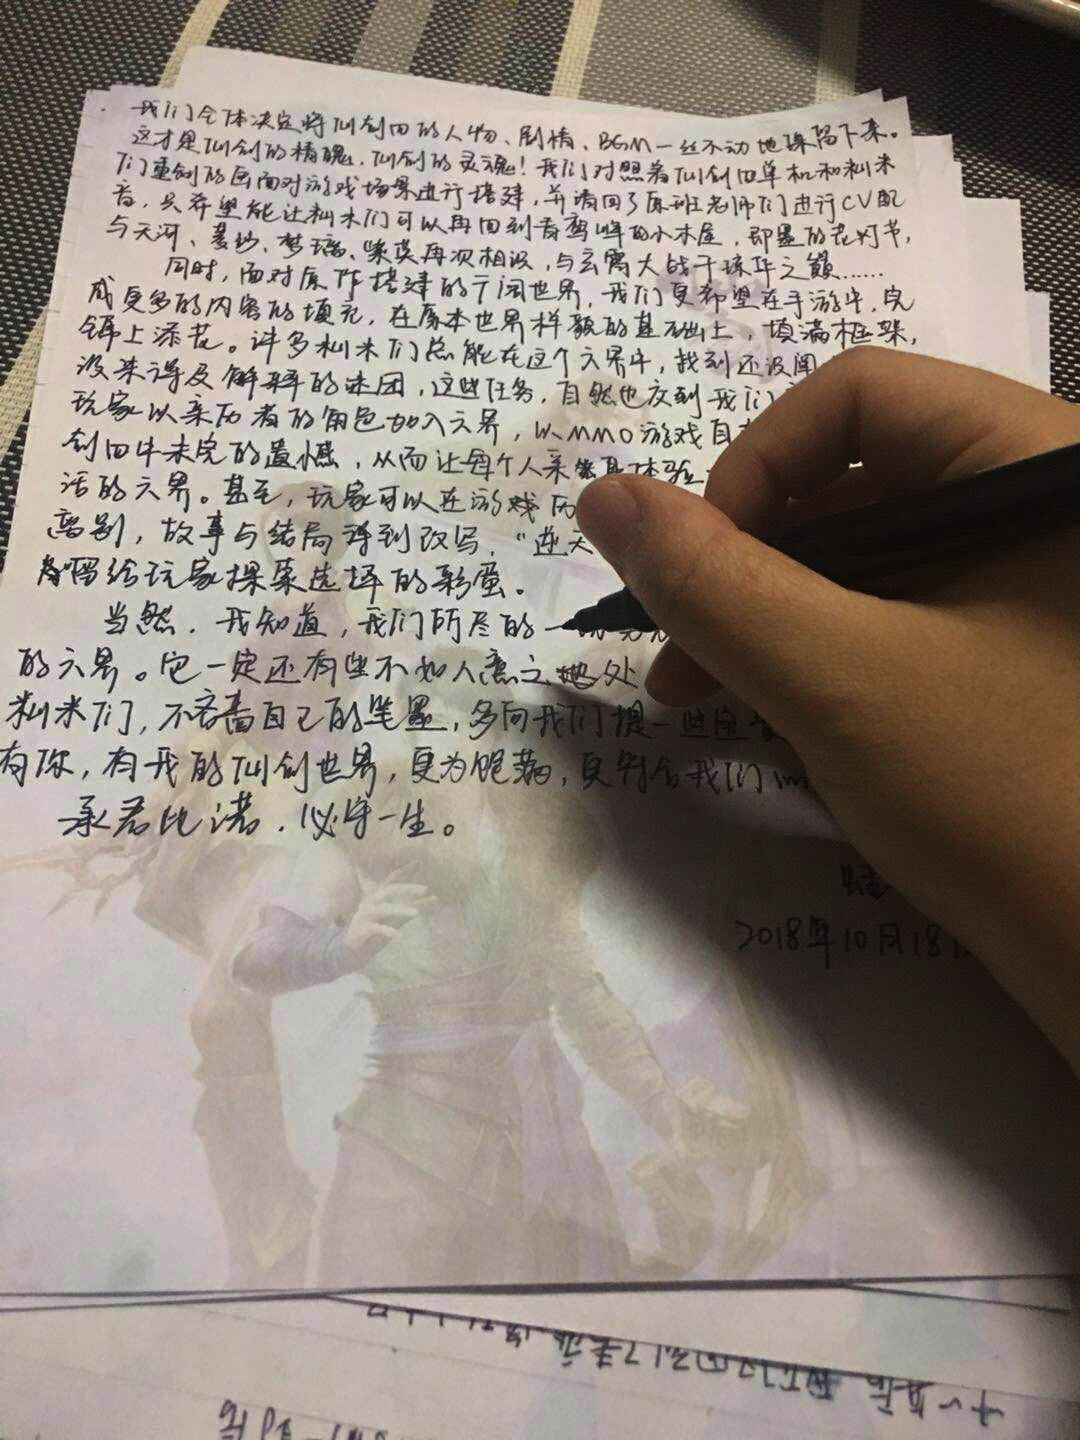 我们全体决定将仙剑四的人物、剧情、BGM一丝不动地保留下来。
这才是仙剑的精魄,仙剑的灵魂!我们对照着仙剑四单机和籼米
们重制的画面对游戏场景进行搭建,并请回了原班老师们进行CV配
音,只希望能让籼米们可以再回到青鸾峰的小木屋,即墨的花灯节,
与天河、菱纱、梦璃、紫英再次相识,与玄霄大战于琼华之巅……
同时,面对原作搭建的广阔世界,我们更希望在手游中,完
成更多的内容的填充,在原本世界样貌的基础上,填满框架,
锦上添花。许多籼米们总能在这个六界中,找到还没闻
没来得及解释的迷团,这些任务,自然也交到我们
玩家以亲历者的角色加入六界,以MMO游戏自
剑四中未完的遗憾,从而让每个人亲身体验
活的六界。甚至,玩家可以在游戏历
离别,故事与结局得到改写,“逆天
留给玩家探索选择的彩蛋。
当然,我知道,我们所尽的一
的六界。它一定还有些不如人意之处
籼米们,不吝啬自己的笔墨,多向我们提一些宝
有你,有我的仙剑世界,更为饱满,更符合我们
承君此诺,必守一生。
2018年10月18